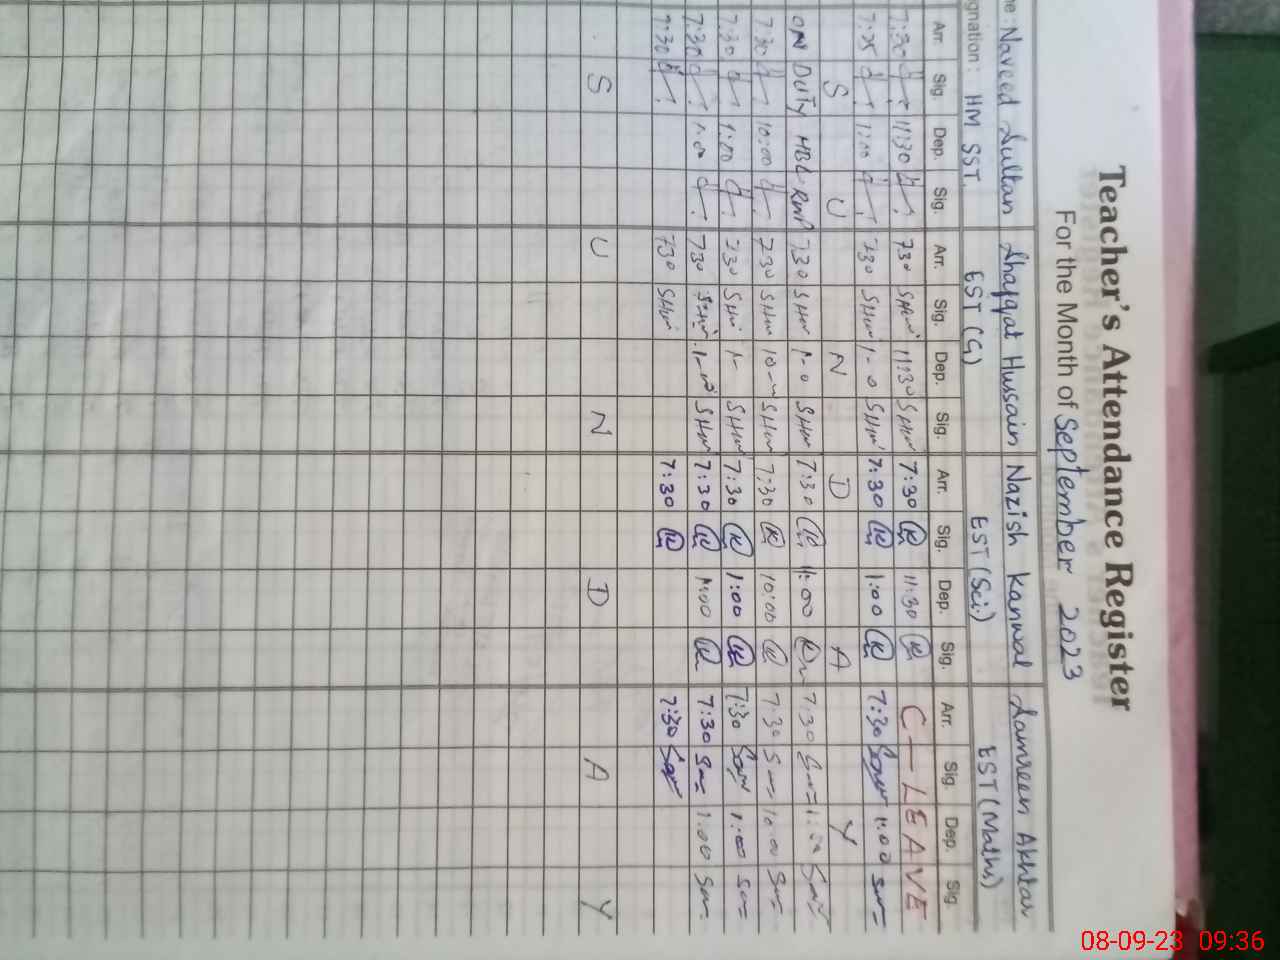 Teacher's Attendance Register
For the Month of September 2023
me: Naveed Sultan Shafqat Hussain Nazish Kanwal Samreen Akhtar
gnation: HM SST EST(G) EST(Sci) EST(Maths)
Arr. Sig. Dep. Sig. Arr. Sig. Dep. Sig. Arr. Sig. Dep. Sig. Arr. Sig. Dep. Sig.
7:30 11:30 730 SHW 11:30 SHW 7:30 K 11:30 K C-LEAVE
7:25 1:00 730 SHW 1-0 SHW 7:30 K 1:00 K 7:30 Sam 1:00 Sam
S U N D A Y
ON DUTY HBL RWP 7:30 SHW 1-0 SHW 7:30 K 11:00 K 7:30 Sam
7:30 10:00 730 SHW 10 SHW 7:30 K 10:00 K 7:30 Sam 10:00 Sam
7:30 1:00 730 SHW 1- SHW 7:30 K 1:00 K 7:30 Sam 1:00 Sam
7:30 1:00 730 SHW 1 SHW 7:30 K 1:00 K 7:30 Sam 1:00 Sam
7:30 730 SHW 7:30 K 7:30 Sam
S U N D A Y
08-09-23 09:36